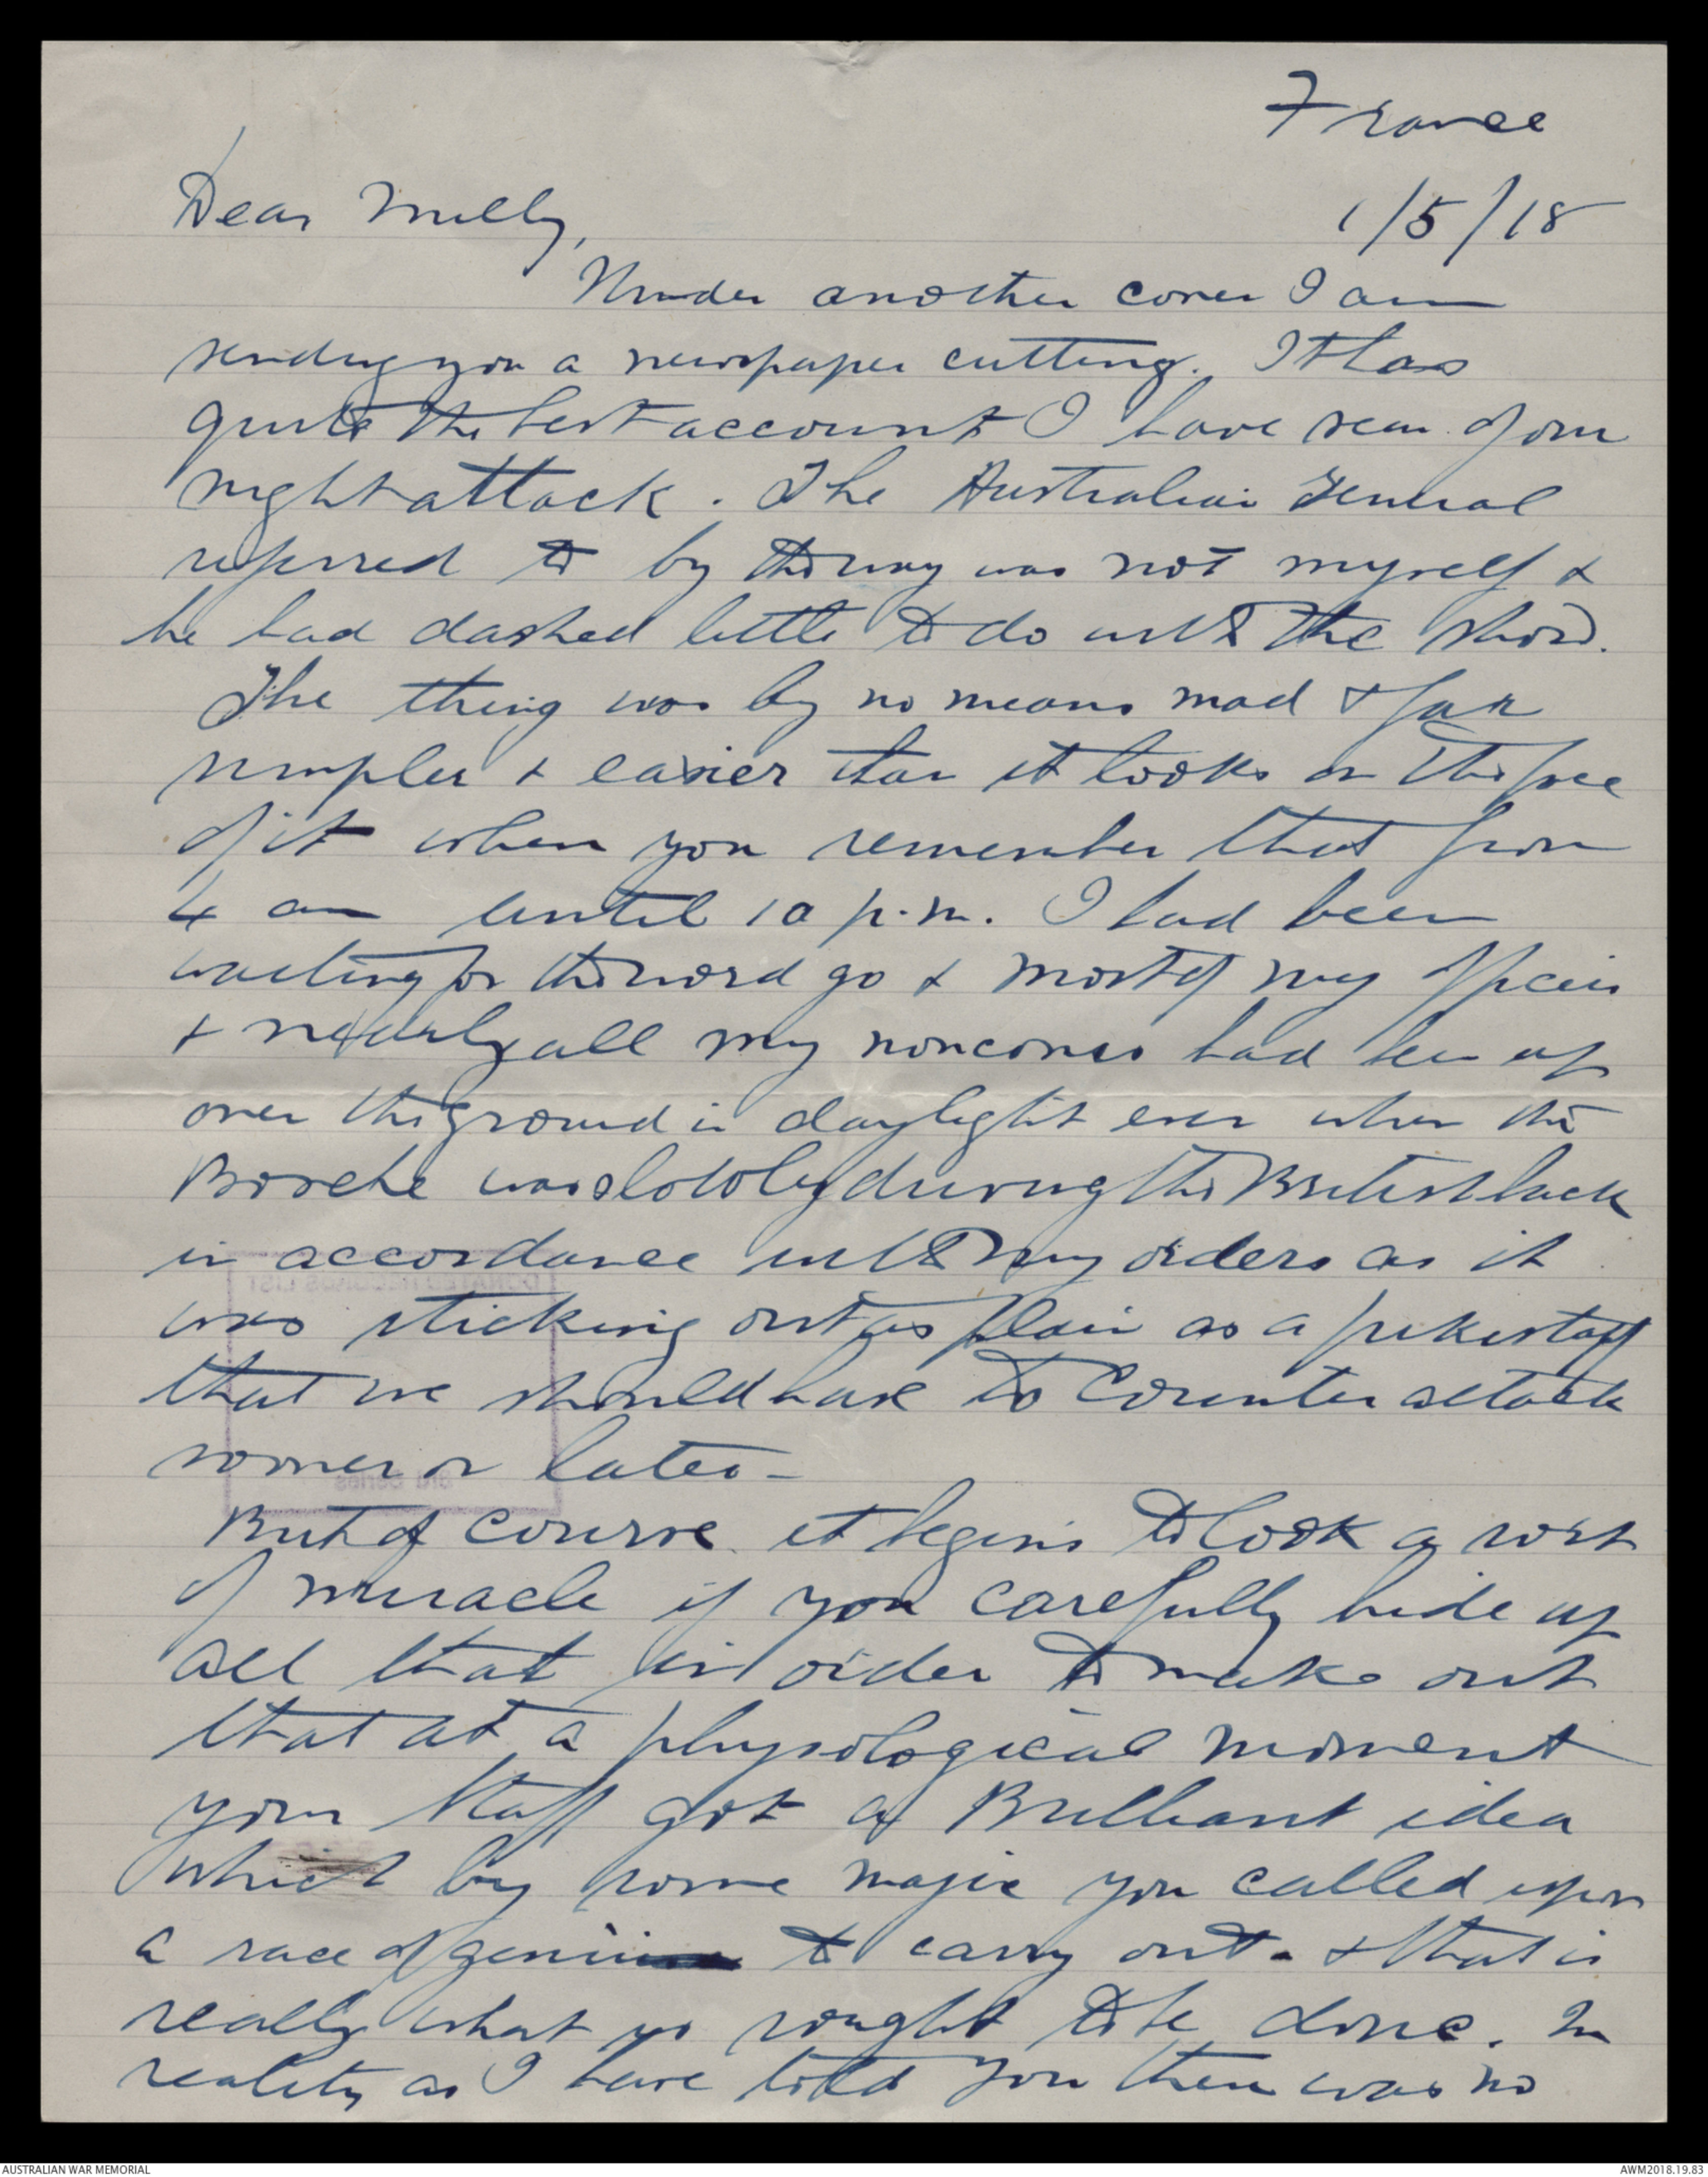 France
1/5/18
Dear Milly,
Under another cover I am
sending you a newspaper cutting. It has
quite the best account I have seen of our
night attack. The Australian General
referred to by the way was not myself &
he had dashed little to do with the show.
The thing was by no means mad & far
simpler & easier than it looks on the face
of it when you remember that from
4 am until 10 p.m. I had been
waiting for the word go & most of my officers
& nearly all my noncoms had been up
over the ground in daylight even when the
Bosche was slowly driving the British back
in accordance with my orders as it
was sticking out as plain as a pikestaff
that we should have to counter attack
sooner or later -
But of course it begins to look a sort
of miracle if you carefully hide up
all that in order to make out
that at a physological moment
your Staff got a Brilliant idea
which by some magic you called upon
a race of genii to carry out - & that is
really what is sought to be done. In
reality as I have told you there was no
AUSTRALIAN WAR MEMORIAL
AWM2018.19.83